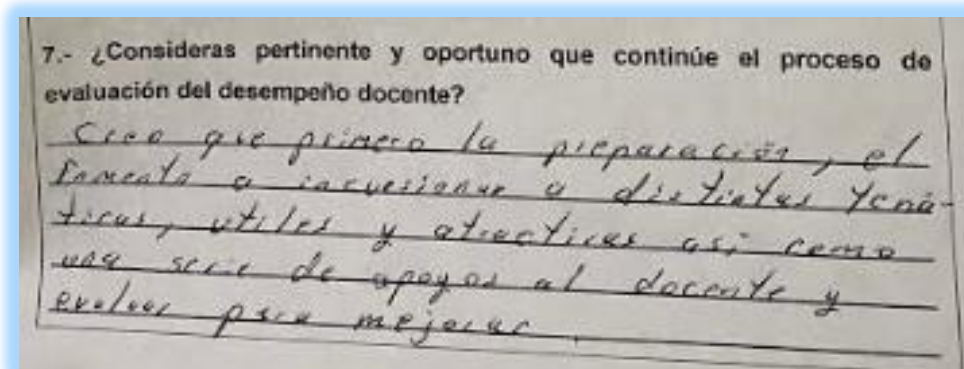 7.- ¿Consideras pertinente y oportuno que continúe el proceso de
evaluación del desempeño docente?
Creo que primero la preparación, el
fomento a incursionar a distintas temá-
ticas, utiles y atractivas asi como
una serie de apoyos al docente y
evaluar para mejorar.